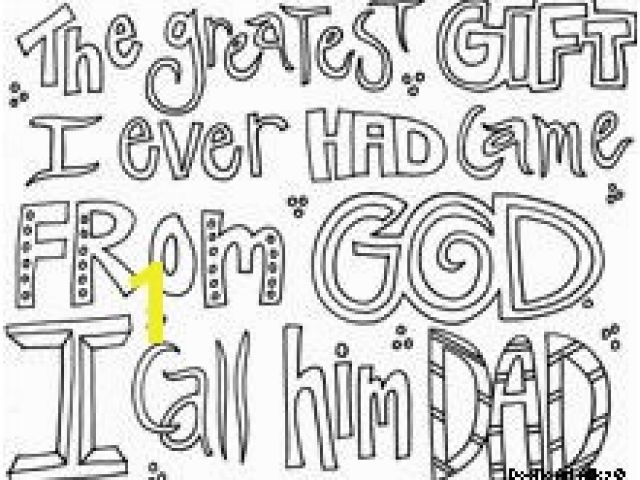 The greatest GIFT
I ever HAD Came
FROM GOD
1
I Call him DAD